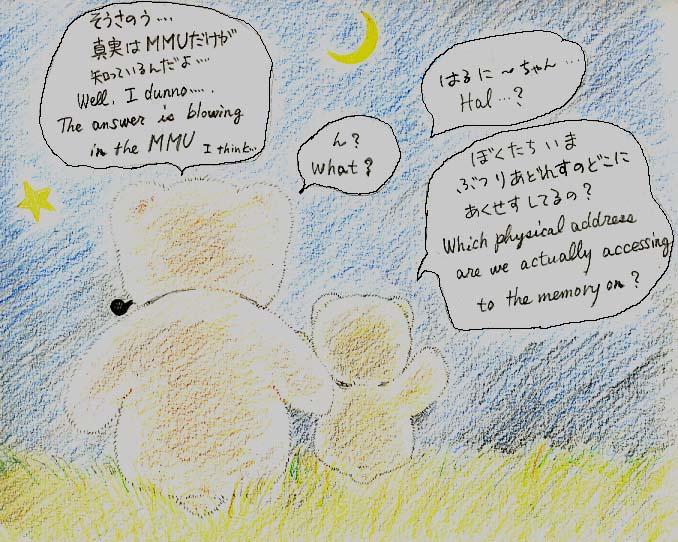 はるに〜ちゃん…
Hal…?
ん?
What?
ぼくたち いま
ぶつりあどれすのどこに
あくせすしてるの?
Which physical address
are we actually accessing
to the memory on?
そうさのう…
真実はMMUだけが
知っているんだよ….
Well, I dunno…..
The answer is blowing
in the MMU I think…